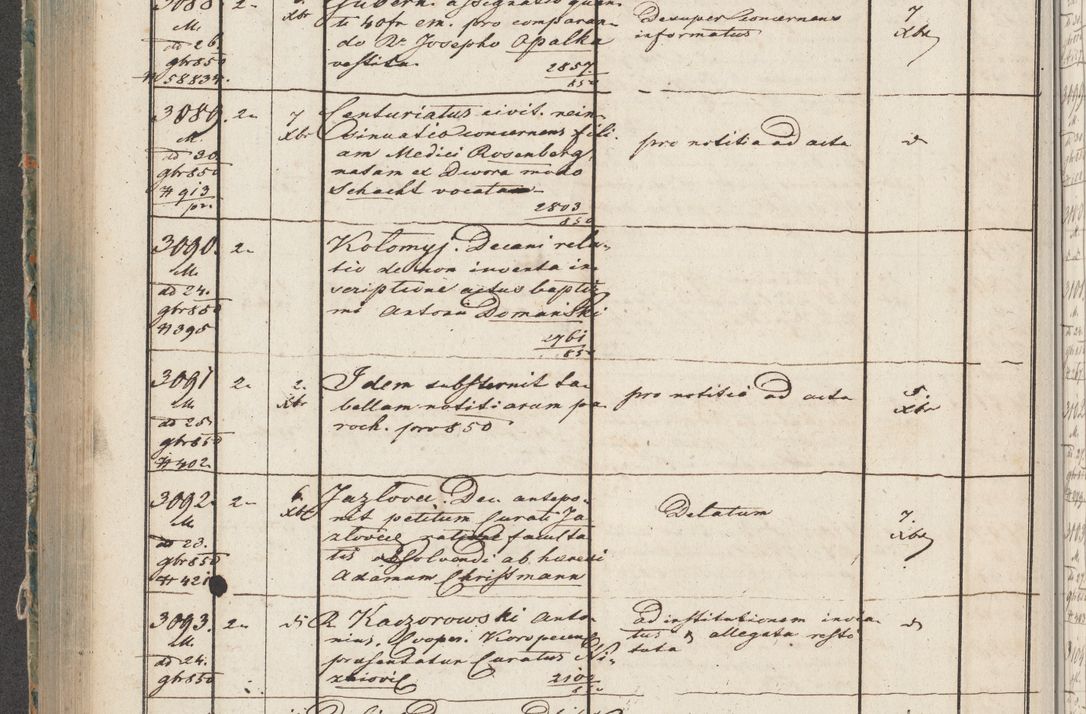 3088. 2.
M.
dd 26.
gbr 850
# 58834.
Gubern. assignatio quan-
ti 40 fr em. pro comparan-
do Rr Josepho Opalka
vestitu.
2857.
850
Desuper concernens
informatus
7
Xbr
3089. 2.
M.
dd 30.
gbr 850
# 913
pr.
7
Xbr
Centuriatus civit. nein-
sinuatio concernens fili-
am Medici Rosenberg,
natam ex Dwora modo
Schacht vocatam
2803
850
pro notitia ad acta
3090. 2.
M.
dd 24.
gbr 850
# 395
Kołomyj. Decani rela-
tio de non inventa in-
scriptione actus baptis-
mi Antonii Domanski
2761
850
3091 2.
M.
dd 25.
gbr 850
# 402.
2.
Xbr
Idem substernit ta-
bellam notitiarum pa-
roch. pro 850
pro notitia ad acta
5.
Xbr
3092. 2.
M.
dd 23.
gbr 850
# 421
6.
Xbr
Jazłovec. Dec. antepo-
nit petitum Curati Ja-
złoviec ratione faculta-
tis absolvendi ab haeresi
Adamum Christmann
Delatum
7.
Xbr
3093. 2.
M.
dd 24.
gbr 850
R. Kaczorowski Anto-
nius, Cooper. Koropecen.
praesentatur Curatus Ni-
zniovie
2102
850
ad institutionem invita-
tus & allegata resti-
tuta